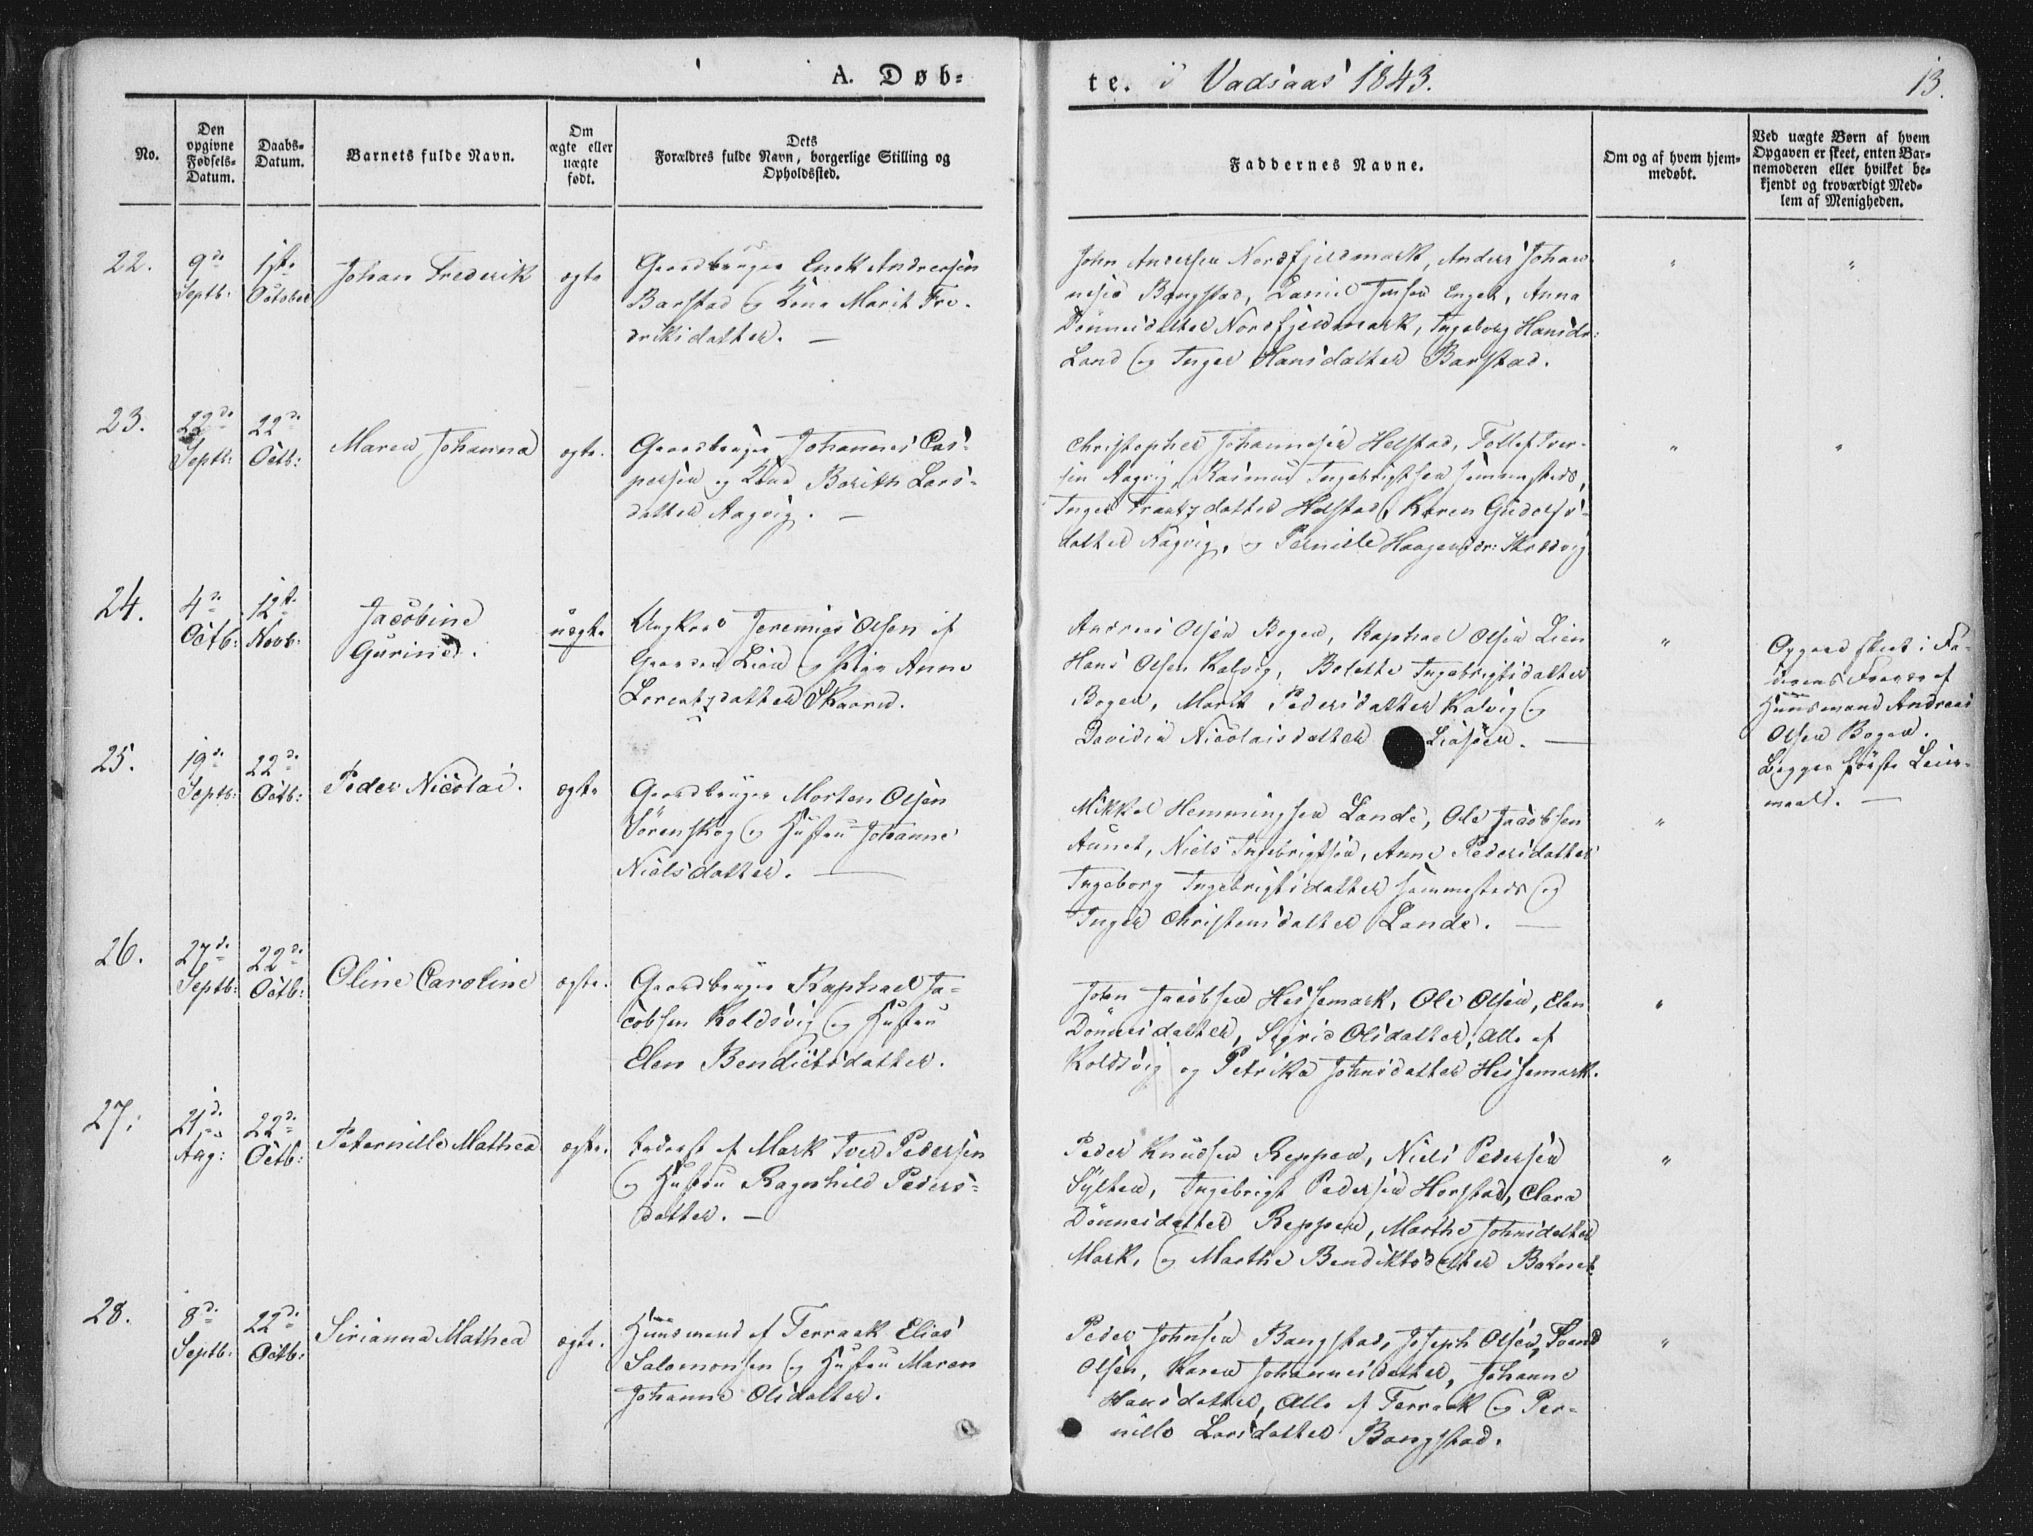 A. Døb=
te. i Vadsaas 1843.
13.
No.
Den
opgivne
Fødsels-
Datum.
Daabs-
Datum.
Barnets fulde Navn.
Om
ægte eller
uægte
født.
Dets
Forældres fulde Navn, borgerlige Stilling og
Opholdssted.
Faddernes Navne.
Om og af hvem hjem-
medøbt.
Ved uægte Børn af hvem
Opgaven er skeet, enten Bar-
nemoderen eller hvilket be-
kjendt og troværdigt Med-
lem af Menigheden.
22.
9de
Septb:
1ste
October
Johan Frederik
ægte
Gaardbruger Enok Andreasen
Barstad og Kone Marit Fre-
driksdatter. —
John Andersen Nordfjeldmark, Anders Johan-
nesen Bangstad, Daniel Jensen Enget, Anna
Dönnesdatter Nordfjeldmark, Ingeborg Hansdr:
Land og Inger Hansdatter Barstad.
"
"
23.
22de
Septb:
22de
Octb:
Maren Johanna
ægte.
Gaardbruger Johannes Cas-
persen og Kone Berith Lars-
datter Aagvig. —
Christopher Johannesen Helstad, Tollef Iver-
sen Aagvig, Rasmus Ingebrigtsen sammesteds,
Inger Frantzdatter Helstad, Karen Gudolfs-
datter Aagvig, og Pernille Haagensdr:
"
"
24.
4de
Octb:
12te
Novb:
Jacobine
Gurine.
uægte
Ungkarl Jeremias Olsen af
Gaarden Lien og Pige Anne
Lorentzdatter Skaard.
Andreas Olsen Bogen, Raphael Olsen Lien
Hans Olsen Kalvig, Bolette Ingebrigtsdatter
Bogen, Marit Pedersdatter Kalvig og
Davidia Nicolaisdatter Liasöen. —
"
Opgaven skeet i Fa-
derens Fravær af
Huusmand Andreas
Olsen Bogen.
Begges første Leier-
maal. —
25.
19de
Septb:
22de
Octb:
Peder Nicolai.
ægte
Gaardbruger Morten Olsen
Sörenskog og Hustru Johanne
Nielsdatter. —
Mikkel Hemmingsen Lande, Ole Jacobsen
Aunet, Niels Ingebrigtsen, Anne Pedersdatter
Ingeborg Ingebrigtsdatter sammesteds og
Inger Christensdatter Lande. —
"
26.
27de
Septb:
22de
Octb:
Oline Caroline
ægte.
Gaardbruger Raphael Ja-
cobsen Koldsvig og Hustru
Elen Bendictsdatter.
John Jacobsen Heissemark, Ole Olsen, Elen
Dönnesdatter, Sigrid Olsdatter, Alle af
Koldsvig og Petrika Johnsdatter Heissemark.
"
27.
21de
Aug:
22de
Octb:
Peternille Mathea
ægte.
Inderst af Mark Iver Pedersen
og Hustru Ragnhild Peders-
datter. —
Peder Knudsen Reppen, Niels Pedersen
Sylten, Ingebrigt Pedersen Horstad, Clara
Dönnesdatter Reppen, Marthe Johnsdatter
Mark, og Marthe Bendiktsdatter
"
28.
8de
Septb:
22de
Octb:
Sirianna Mathea
ægte.
Huusmand af Terraak Elias
Salomonsen og Hustru Maren
Johanne Olsdatter.
Peder Johnsen Bangstad, Joseph Olsen, Svend
Olsen, Karen Johannesdatter, Johanne
Hansdatter, Alle af Terraak og Per-
nille Larsdatter Bangstad.
"